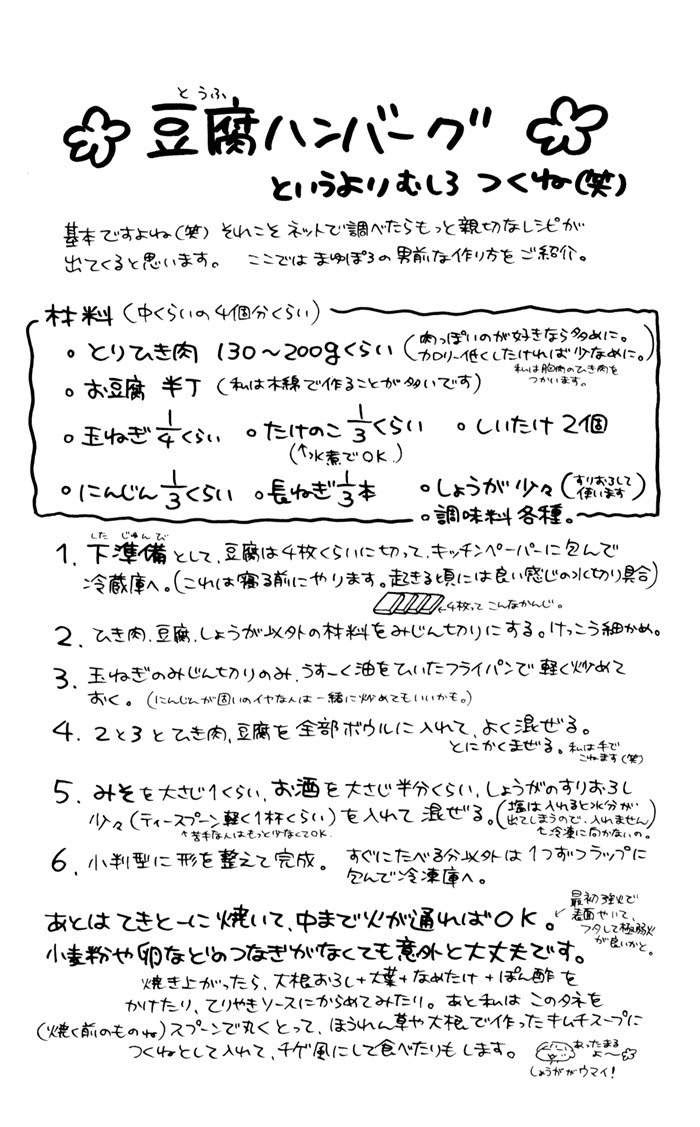 とうふ
豆腐ハンバーグ
というよりむしろ つくね(笑)
基本ですよね(笑) それこそ ネットで調べたらもっと親切なレシピが
出てくると思います。 ここでは まゆぽろの男前な作り方をご紹介。
材料(中くらいの4個分くらい)
・とりひき肉 130〜200gくらい(肉っぽいのが好きなら多めに。
カロリー低くしたければ少なめに。)
私は胸肉のひき肉を
つかいます。
・お豆腐 半丁(私は木綿で作ることが多いです)
・玉ねぎ 1/4くらい ・たけのこ 1/3くらい ・しいたけ 2個
(↑水煮でOK.)
・にんじん 1/3くらい ・長ねぎ 1/3本 ・しょうが 少々(すりおろして
使います)
・調味料各種。
した じゅんび
1. 下準備として、豆腐は4枚くらいに切って、キッチンペーパーに包んで
冷蔵庫へ。(これは寝る前にやります。起きる頃には良い感じの水切り具合)
←4枚って こんなかんじ。
2. ひき肉、豆腐、しょうが以外の材料をみじん切りにする。けっこう細かめ。
3. 玉ねぎのみじん切りのみ、うすーく油をひいたフライパンで軽く炒めて
おく。(にんじんが固いのイヤな人は一緒に炒めてもいいかも。)
4. 2と3とひき肉、豆腐を全部ボウルに入れて、よく混ぜる。
とにかくまぜる。私は手で
こねます(笑)
5. みそを大さじ1くらい、お酒を大さじ半分くらい、しょうがのすりおろし
少々(ティースプーン軽く1杯くらい)を入れて 混ぜる。(塩は入れると水分が
出てしまうので、入れません)
↑苦手な人はもっと少なくてOK.
↖冷凍に向かないの。
6. 小判型に形を整えて完成。 すぐにたべる分以外は1つずつラップに
包んで冷凍庫へ。
あとはてきとーに焼いて、中まで火が通ればOK。
↙最初強火で
表面やいて、
フタして極弱火
が良いかと。
小麦粉や卵などのつなぎがなくても意外と大丈夫です。
焼き上がったら、大根おろし+大葉+なめたけ+ぽん酢を
かけたり、てりやきソースにからめてみたり。あと私は このタネを
(焼く前のものね)スプーンで丸くとって、ほうれん草や大根で作ったキムチスープに
つくねとして入れて、チゲ風にして食べたりもします。
あったまる
よ〜
しょうががウマイ!